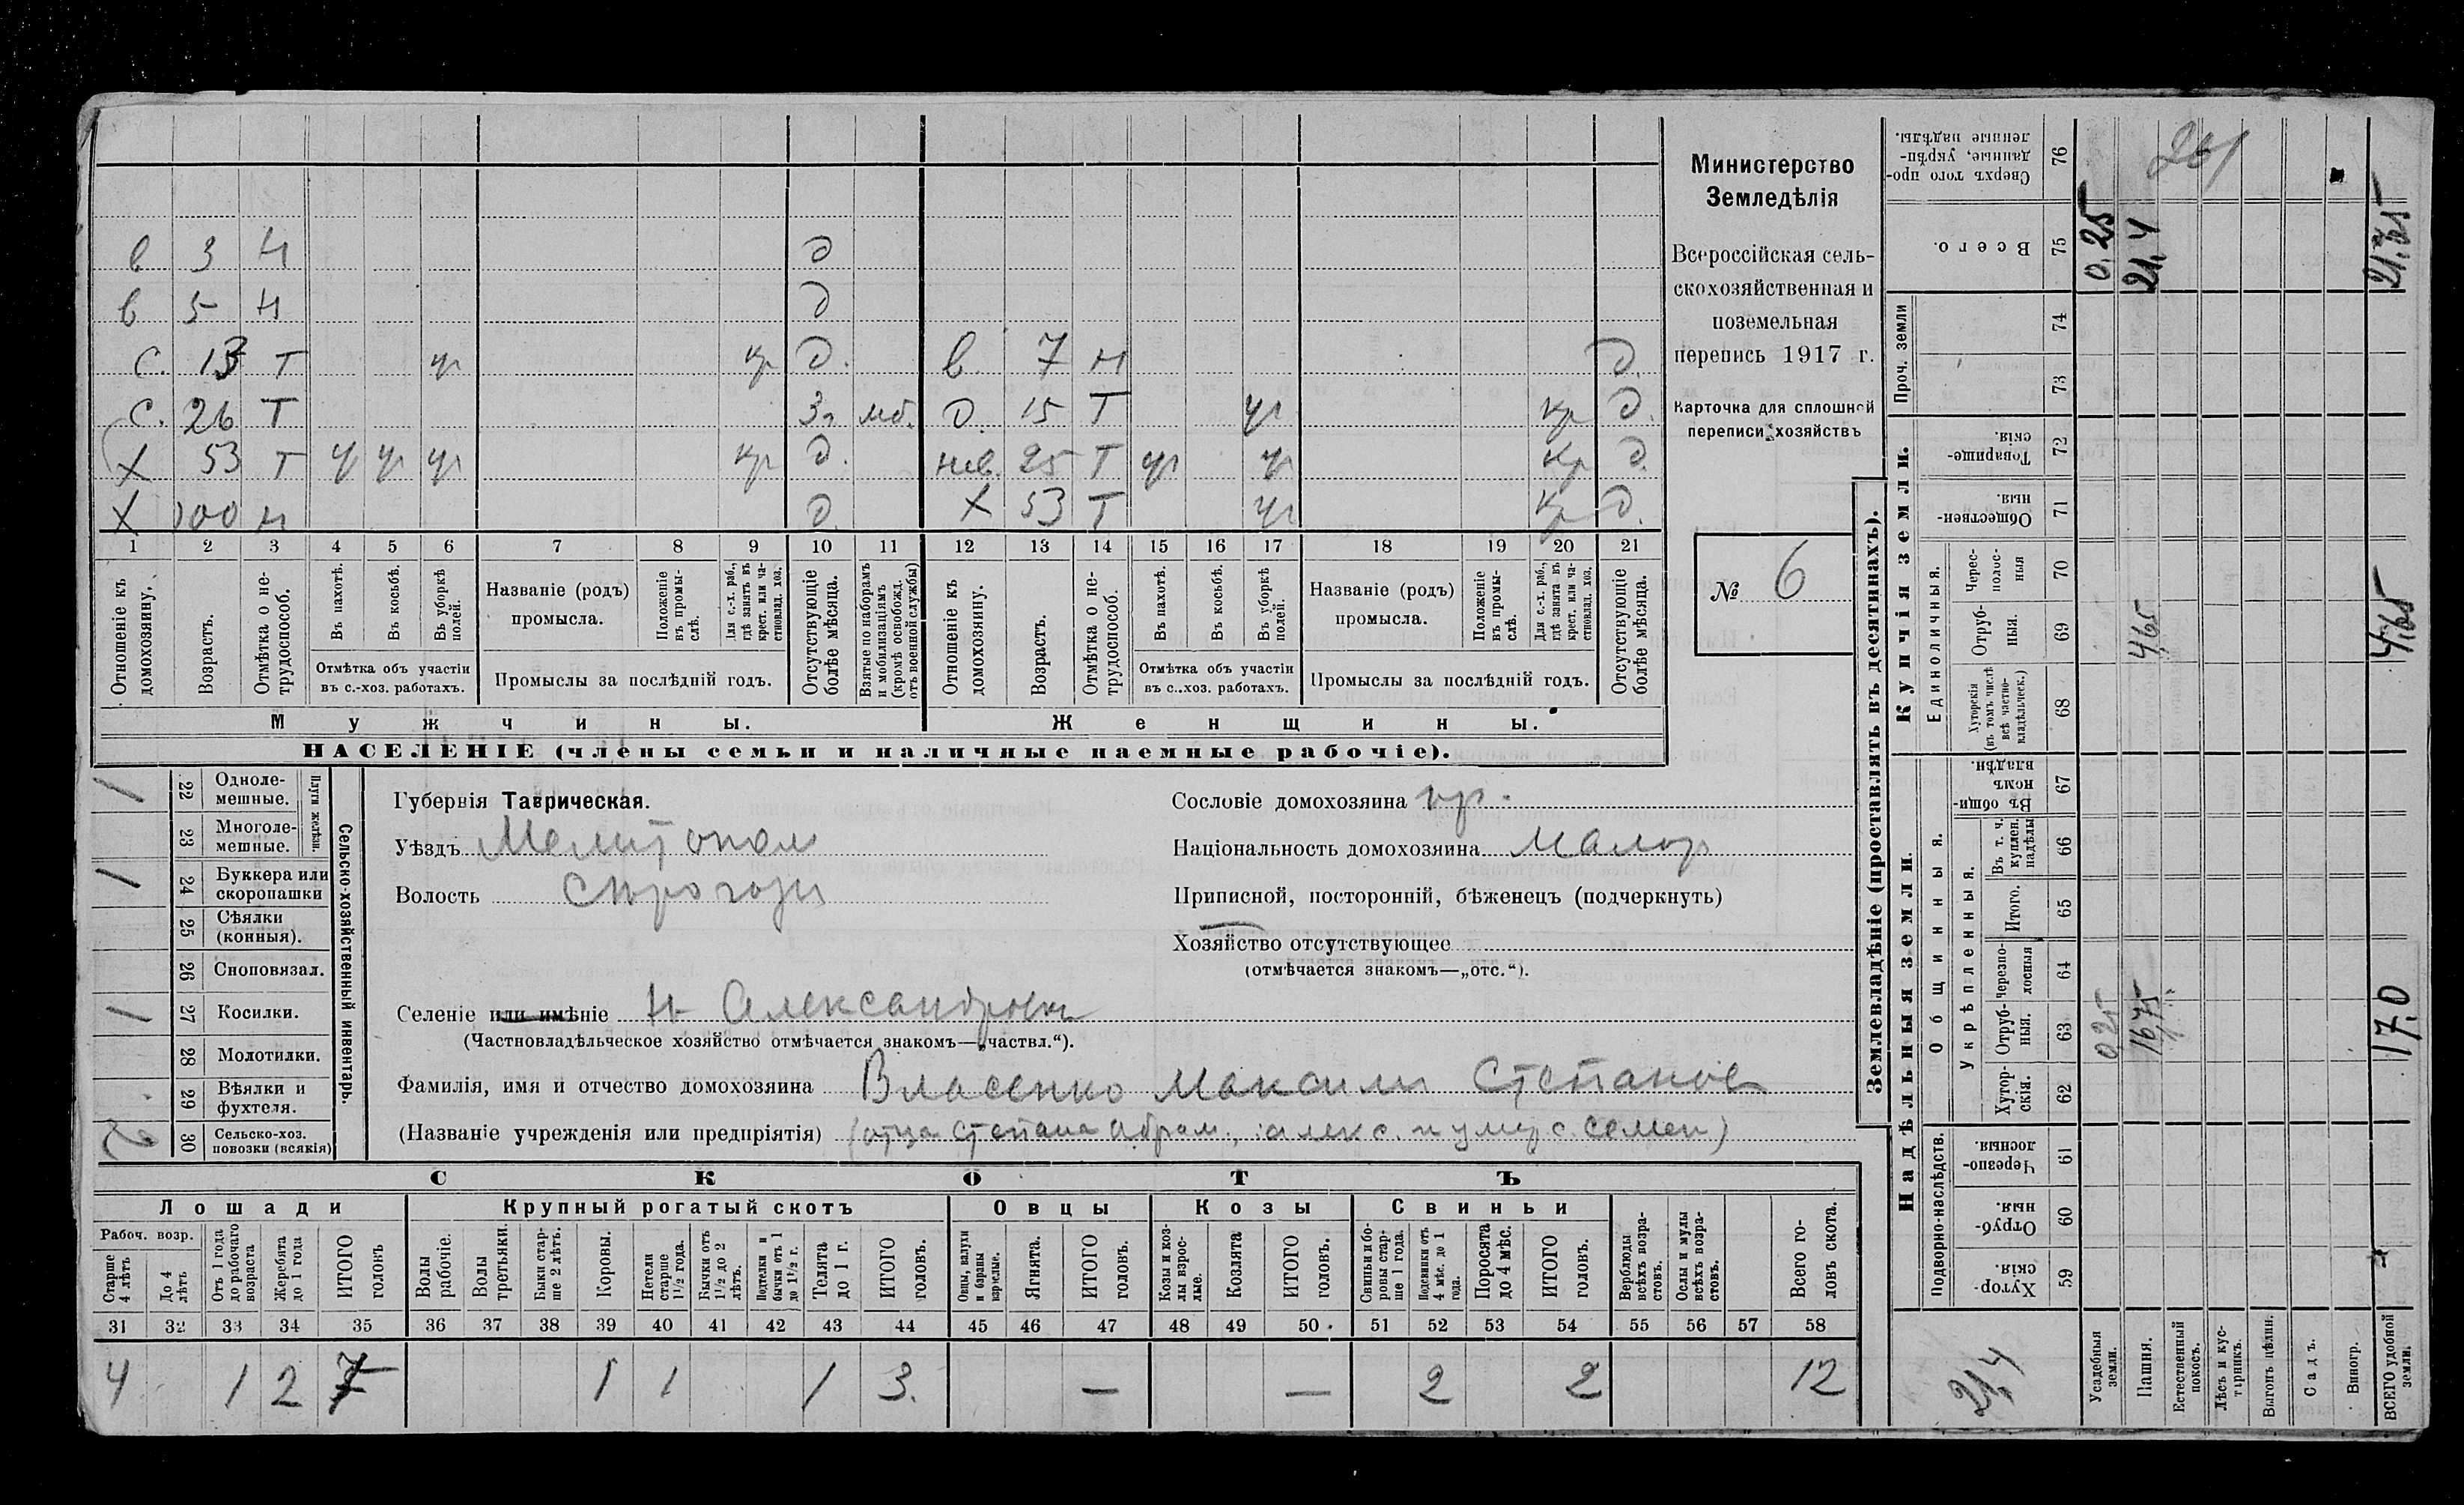 в 3 н д
в 5 н д
с. 13 т ур кр д. в. 7 н д.
с. 26 Т 3г мб. д. 15 Т ур кр д.
х 53 т ур ур ур кр д. нев. 25 Т ур ур кр д.
х 100 н д. х 53 Т ур кр д.
1 2 3 4 5 6 7 8 9 10 11 12 13 14 15 16 17 18 19 20 21
Отношеніе къ домохозяину.
Возрастъ.
Отмѣтка о нетрудоспособ.
Въ пахотѣ.
Въ косьбѣ.
Въ уборкѣ полей.
Отмѣтка объ участіи
въ с.-хоз. работахъ.
Названіе (родъ)
промысла.
Положеніе въ промыслѣ.
Для с.-х. раб., гдѣ занятъ въ крест. или частновлад. хоз.
Промыслы за послѣдній годъ.
Отсутствующіе болѣе мѣсяца.
Взятые наборамъ и мобилизаціямъ (кромѣ освобожд. отъ военной службы)
Отношеніе къ домохозяину.
Возрастъ.
Отмѣтка о нетрудоспособ.
Въ пахотѣ.
Въ косьбѣ.
Въ уборкѣ полей.
Отмѣтка объ участіи
въ с..хоз. работахъ.
Названіе (родъ)
промысла.
Положеніе въ промыслѣ.
Для с.-х. раб., гдѣ занята въ крест. или частновлад. хоз.
Промыслы за послѣдній годъ.
Отсутствующіе болѣе мѣсяца.
Мужчины. Женщины.
НАСЕЛЕНІЕ (члены семьи и наличные наемные рабочіе).
Министерство
Земледѣлія
Всероссійская сель-
скохозяйственная и
поземельная
перепись 1917 г.
Карточка для сплошной
переписи хозяйствъ
№ 6
1 22 Одноле-
мешные.
23 Многоле-
мешные.
Плуги желѣзн.
1 24 Буккера или
скоропашки
25 Сѣялки
(конныя).
26 Сноповязал.
1 27 Косилки.
28 Молотилки.
29 Вѣялки и
фухтеля.
2 30 Сельско-хоз.
повозки (всякія)
Сельско-хозяйственный инвентарь.
Губернія Таврическая.
Уѣздъ Мелитопол
Волость Сѣрогозы
Сословіе домохозяина кр.
Національность домохозяина Малор
Приписной, посторонній, бѣженецъ (подчеркнуть)
Хозяйство отсутствующее
(отмѣчается знакомъ—„отс.“).
Селеніе или имѣніе Н Александровка
(Частновладѣльческое хозяйство отмѣчается знакомъ—„частвл.“).
Фамилія, имя и отчество домохозяина Власенко Максим Степанов
(Названіе учрежденія или предпріятія) (отца Степана Абрам., алекс. и умер с. Семен)
СКОТЪ
Лошади Крупный рогатый скотъ Овцы Козы Свиньи
Рабоч. возр.
Старше 4 лѣтъ
До 4 лѣтъ
Отъ 1 года до рабочаго возраста
Жеребята до 1 года
ИТОГО головъ
Волы рабочіе.
Волы третьяки.
Быки старше 2 лѣтъ.
Коровы.
Нетели старше 1½ года.
Бычки отъ 1½ до 2 лѣтъ.
Подтелки и бычки отъ 1 до 1½ г.
Телята до 1 г.
ИТОГО головъ.
Овцы, валухи и бараны взрослые.
Ягнята.
ИТОГО головъ.
Козы и козлы взрослые.
Козлята
ИТОГО головъ.
Свиньи и боровы старше 1 года.
Подсвинки отъ 4 мѣс. до 1 года.
Поросята до 4 мѣс.
ИТОГО головъ.
Верблюды всѣхъ возрастовъ.
Ослы и мулы всѣхъ возрастовъ.
Всего головъ скота.
31 32 33 34 35 36 37 38 39 40 41 42 43 44 45 46 47 48 49 50 51 52 53 54 55 56 57 58
4 1 2 7 1 1 1 3. — — 2 2 12
Землевладѣніе (проставлять въ десятинахъ).
Надѣльныя земли. Купчія земли. Проч. земли
Подворно-наслѣдств.
Общинныя.
Укрѣпленныя.
Единоличныя.
Хуторскія. 59
Отрубныя. 60
Черезполосныя 61
Хуторскія. 62
Отрубныя. 63
Черезполосныя 64
Итого. 65
Въ т. ч. куплен. надѣлы 66
Въ общиномъ владѣн. 67
Хуторскія (въ томъ числѣ всѣ частновладѣльческ.) 68
Отрубныя. 69
Чересполосныя 70
Общественныя. 71
Товарищескія. 72
73
74
Всего. 75
Сверхъ того проданные, укрѣпленные надѣлы. 76
21,4
Усадебныя земли. 0,25 0,25
Пашня. 16,75 4,65 21,4
Естественный покосъ.
Лѣсъ и кустарникъ.
Выгонъ цѣлин.
Садъ.
Виногр.
ВСЕГО удобной земли. 17,0 4,65 21,65
261